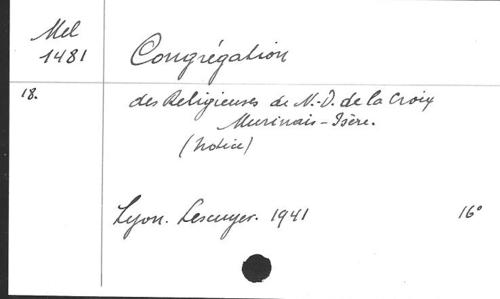 Mel
1481
Congrégation
18.
des Religieuses de N.-D. de la Croix
Murinais - Isère.
(Notice)
Lyon. Lescuyer. 1941
16°